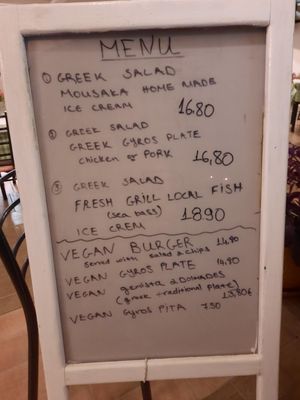 MENU
① GREEK SALAD
MOUSAKA HOME MADE
ICE CREAM 16,80
② GREEK SALAD
GREEK GYROS PLATE
chicken or PORK 16,80
③ GREEK SALAD
FRESH GRILL LOCAL FISH
(sea bass) 18.90
ICE CREM
VEGAN BURGER 14,90
served with salad & chips
VEGAN GYROS PLATE 14,90
VEGAN 2 DOLMADES
(greek traditional plate) 13,80€
VEGAN Gyros PITA 7.50